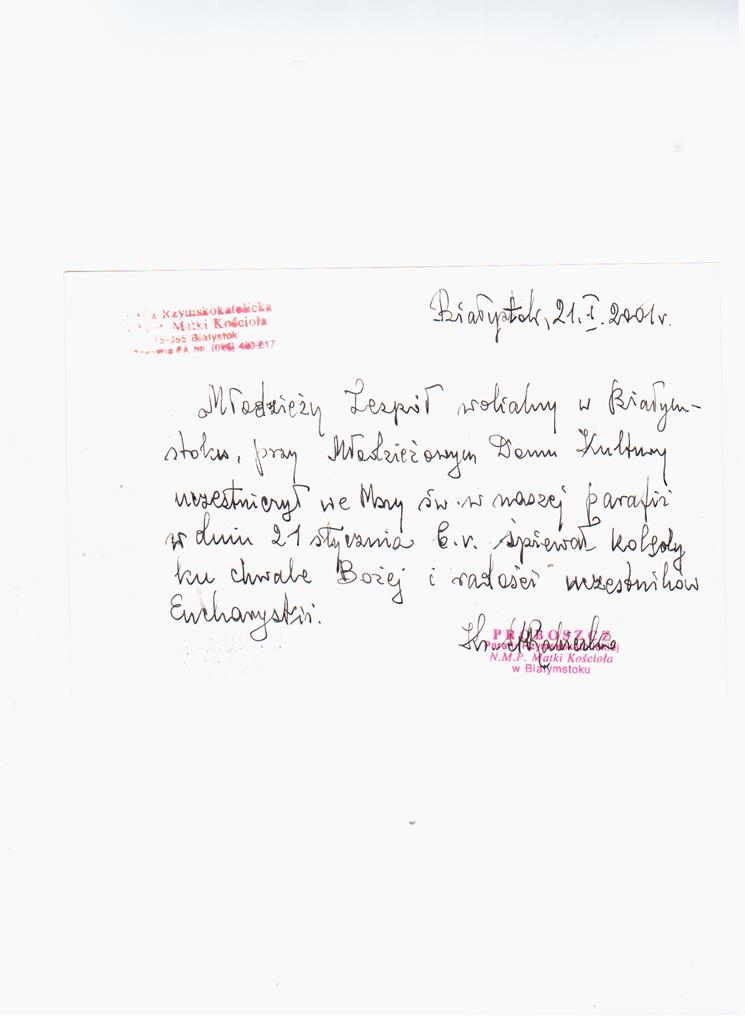 Rzymskokatolicka
Matki Kościoła
15-355 Białystok
Białystok, 21.I.2001r.
Młodzieży Zespół wokalny w Białym-
stoku, przy Młodzieżowym Domu Kultury
uczestniczył we Mszy św. w naszej parafii
w dniu 21 stycznia b.r. śpiewał kolędy
ku chwale Bożej i radości uczestników
Eucharystii.
PROBOSZCZ
N.M.P. Matki Kościoła
w Białymstoku